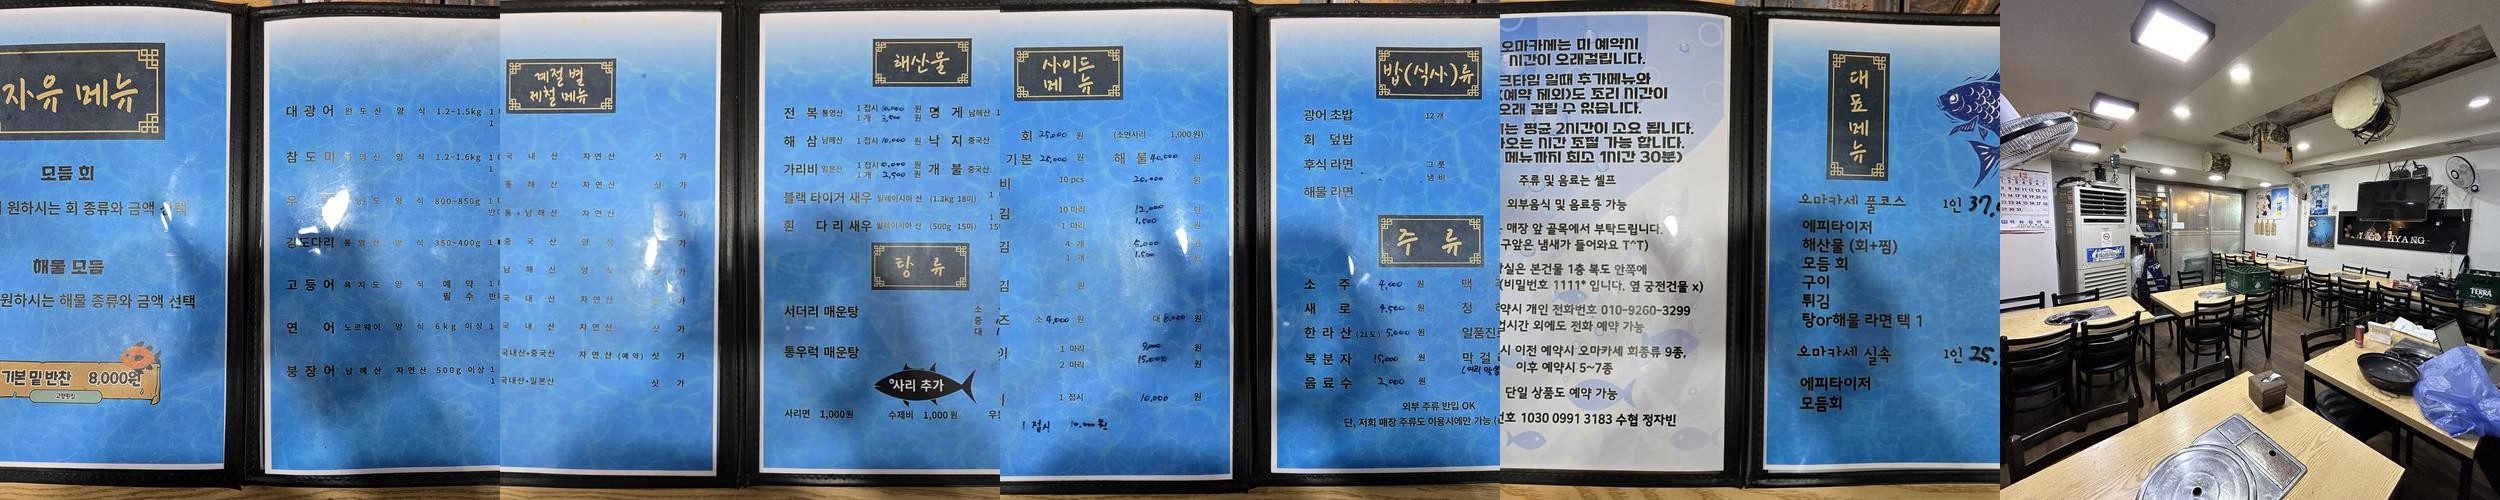 자유 메뉴
모듬 회
원하시는 회 종류와 금액 선택
해물 모듬
원하시는 해물 종류와 금액 선택
기본 밑 반찬 8,000원
고향횟집
대 광 어 완 도 산 양 식 1.2~1.5kg 1
1
참 도 미 산 양 식 1.2~1.6kg 1
1
우 도 산 양 식 800~850g 1
반
강도다리 통 영 산 양 식 350~400g 1
고 등 어 욕 지 도 양 식 예 약 1
필 수 반
연 어 노르웨이 양 식 6kg 이상 1
붕 장 어 남 해 산 자연산 500g 이상 1
1
계절별
제철 메뉴
국 내 산 자 연 산 싯 가
동 해 산 자 연 산 싯 가
동 • 남 해 산 자 연 산 싯 가
중 국 산 양 식 싯 가
남 해 산 양 식 싯 가
국 내 산 자 연 산 싯 가
국 내 산 자 연 산 싯 가
국내산•중국산 자 연 산 (예 약) 싯 가
국내산•일본산 싯 가
해산물
전 복 통영산 1 접시 10,000 원 멍 게 남해산 1
1 개 3,500 원
해 삼 남해산 1 접시 10,000 원 낙 지 중국산
가리비 일본산 1 접시 10,000 원 개 불 중국산
1 개 2,500 원
블랙 타이거 새우 말레이시아 산 (1.3kg 18미) 1
흰 다 리 새우 말레이시아 산 (500g 15미) 15
탕 류
서더리 매운탕 소
중
대
통우럭 매운탕
사리 추가
사리면 1,000원 수제비 1,000원 우
사이드
메 뉴
회 25,000 원 (소면사리 1,000원)
기 본 25,000 원 해 물 40,000 원
비 10 pcs 20,000 원
김 10 마리 12,000 원
1 마리 1,500 원
김 4 개 5,000 원
1 개 1,500 원
김 원
즈 소 4,000 원 대 8,000 원
이 1 마리 9,000 원
2 마리 15,000 원
1 접시 10,000 원
1 접시 10,000원
밥(식사)류
광어 초밥 12 개
회 덮밥
후식 라면 그 릇
냄 비
해물 라면
주 류
소 주 4,000 원 맥
새 로 4,500 원 청
한 라 산 (21도) 5,000 원 일품진
복 분 자 15,000 원 막 걸
음 료 수 2,000 원
외부 주류 반입 OK
단, 저희 매장 주류도 이용시에만 가능
오마카세는 미 예약시
시간이 오래걸립니다.
크타임 일때 추가메뉴와
(예약 제외)도 조리 시간이
오래 걸릴 수 있습니다.
는 평균 2시간이 소요 됩니다.
나오는 시간 조절 가능 합니다.
메뉴까지 최소 1시간 30분)
주류 및 음료는 셀프
외부음식 및 음료등 가능
매장 앞 골목에서 부탁드립니다.
구앞은 냄새가 들어와요 T^T)
장실은 본건물 1층 복도 안쪽에
(비밀번호 1111* 입니다. 옆 궁전건물 x)
약시 개인 전화번호 010-9260-3299
업시간 외에도 전화 예약 가능
시 이전 예약시 오마카세 회종류 9종,
이후 예약시 5~7종
단일 상품도 예약 가능
번호 1030 0991 3183 수협 정자빈
대표메뉴
오마카세 풀코스 1인 37,
에피타이저
해산물 (회+찜)
모듬 회
구이
튀김
탕or해물 라면 택 1
오마카세 실속 1인 25.
에피타이저
모듬회
12
GO HYANG
TERRA